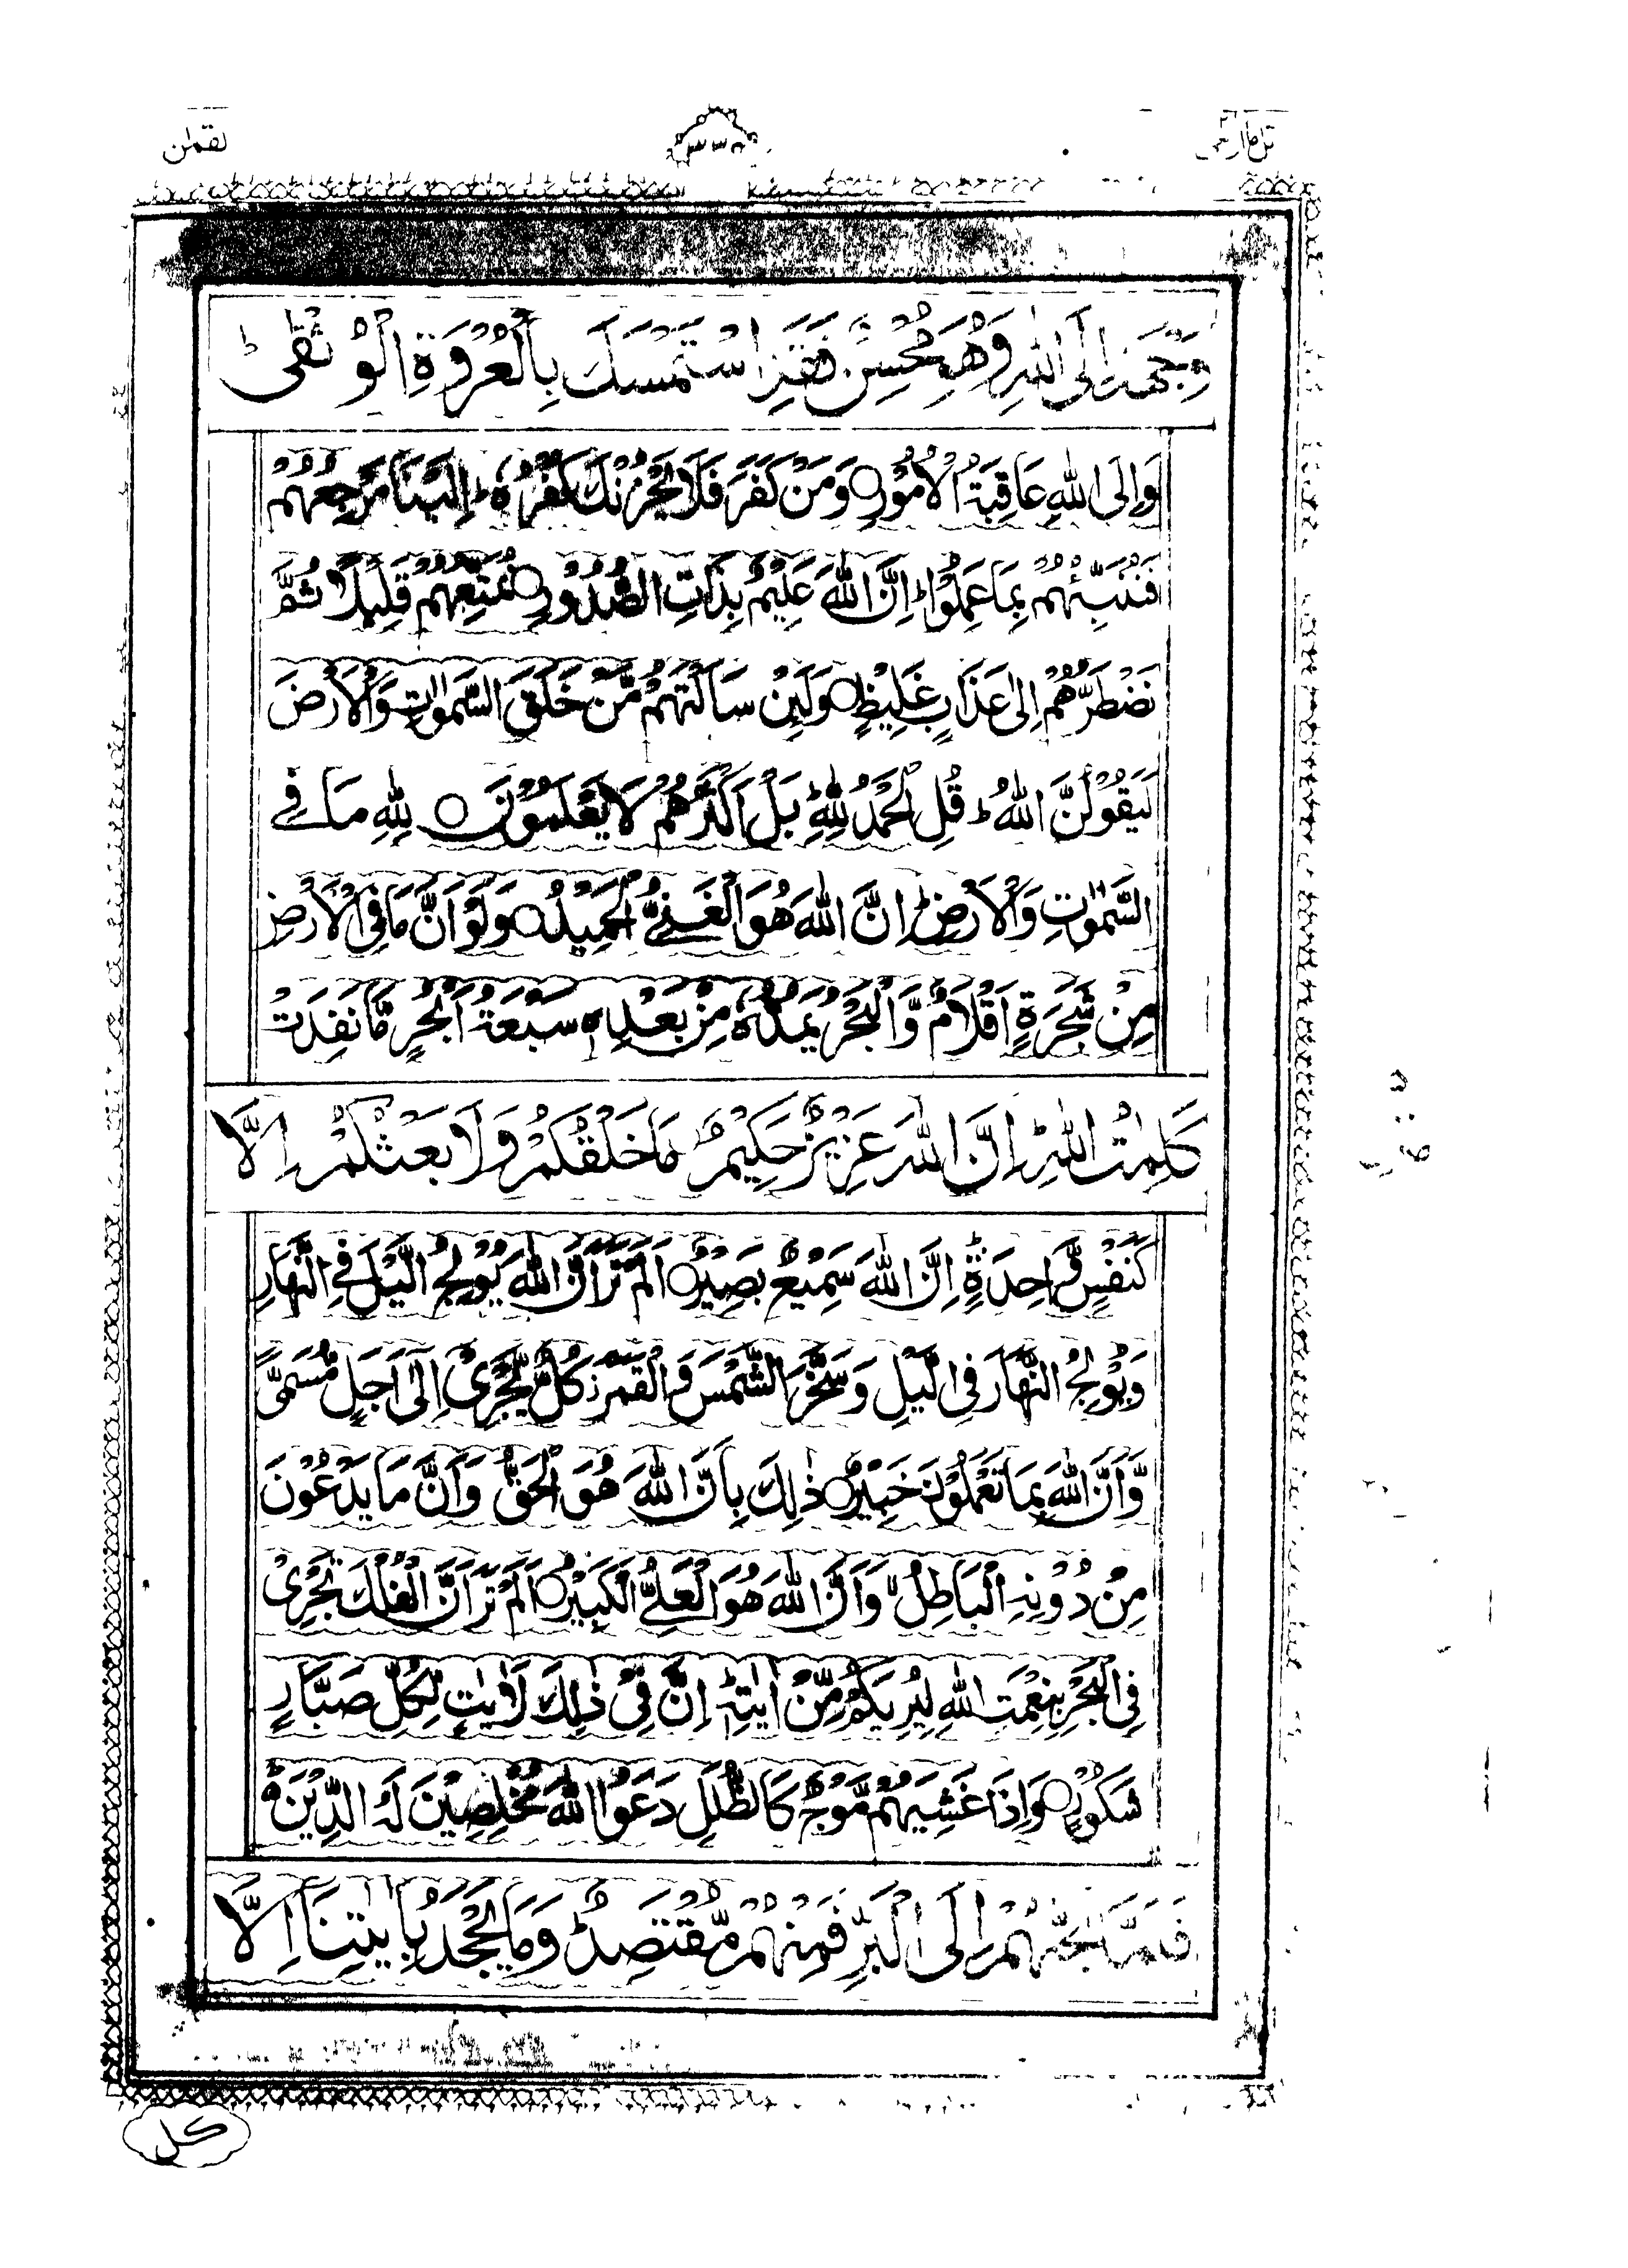 لقمٰن
وَجْهَهٗۤ اِلَى اللّٰهِ وَهُوَ مُحْسِنٌ فَقَدِ اسْتَمْسَكَ بِالْعُرْوَةِ الْوُثْقٰىؕ
وَاِلَى اللّٰهِ عَاقِبَةُ الْاُمُوْرِ۝ وَمَنْ كَفَرَ فَلَا يَحْزُنْكَ كُفْرُهٗؕ اِلَيْنَا مَرْجِعُهُمْ
فَنُنَبِّئُهُمْ بِمَا عَمِلُوْاؕ اِنَّ اللّٰهَ عَلِيْمٌۢ بِذَاتِ الصُّدُوْرِ۝ نُمَتِّعُهُمْ قَلِيْلًا ثُمَّ
نَضْطَرُّهُمْ اِلٰى عَذَابٍ غَلِيْظٍ۝ وَلَئِنْ سَاَلْتَهُمْ مَّنْ خَلَقَ السَّمٰوٰتِ وَالْاَرْضَ
لَيَقُوْلُنَّ اللّٰهُؕ قُلِ الْحَمْدُ لِلّٰهِؕ بَلْ اَكْثَرُهُمْ لَا يَعْلَمُوْنَ۝ لِلّٰهِ مَا فِى
السَّمٰوٰتِ وَالْاَرْضِؕ اِنَّ اللّٰهَ هُوَ الْغَنِىُّ الْحَمِيْدُ۝ وَلَوْ اَنَّ مَا فِى الْاَرْضِ
مِنْ شَجَرَةٍ اَقْلَامٌ وَّالْبَحْرُ يَمُدُّهٗ مِنْۢ بَعْدِهٖ سَبْعَةُ اَبْحُرٍ مَّا نَفِدَتْ
كَلِمٰتُ اللّٰهِؕ اِنَّ اللّٰهَ عَزِيْزٌ حَكِيْمٌ۝ مَا خَلْقُكُمْ وَلَا بَعْثُكُمْ اِلَّا
كَنَفْسٍ وَّاحِدَةٍؕ اِنَّ اللّٰهَ سَمِيْعٌۢ بَصِيْرٌ۝ اَلَمْ تَرَ اَنَّ اللّٰهَ يُوْلِجُ الَّيْلَ فِى النَّهَارِ
وَيُوْلِجُ النَّهَارَ فِى الَّيْلِ وَسَخَّرَ الشَّمْسَ وَالْقَمَرَز كُلٌّ يَّجْرِىْۤ اِلٰٓى اَجَلٍ مُّسَمًّى
وَّاَنَّ اللّٰهَ بِمَا تَعْمَلُوْنَ خَبِيْرٌ۝ ذٰلِكَ بِاَنَّ اللّٰهَ هُوَ الْحَقُّ وَاَنَّ مَا يَدْعُوْنَ
مِنْ دُوْنِهِ الْبَاطِلُۙ وَاَنَّ اللّٰهَ هُوَ الْعَلِىُّ الْكَبِيْرُ۝ اَلَمْ تَرَ اَنَّ الْفُلْكَ تَجْرِىْ
فِى الْبَحْرِ بِنِعْمَتِ اللّٰهِ لِيُرِيَكُمْ مِّنْ اٰيٰتِهٖؕ اِنَّ فِىْ ذٰلِكَ لَاٰيٰتٍ لِّكُلِّ صَبَّارٍ
شَكُوْرٍ۝ وَاِذَا غَشِيَهُمْ مَّوْجٌ كَالظُّلَلِ دَعَوُا اللّٰهَ مُخْلِصِيْنَ لَهُ الدِّيْنَ
فَلَمَّا نَجّٰىهُمْ اِلَى الْبَرِّ فَمِنْهُمْ مُّقْتَصِدٌؕ وَمَا يَجْحَدُ بِاٰيٰتِنَاۤ اِلَّا
كل